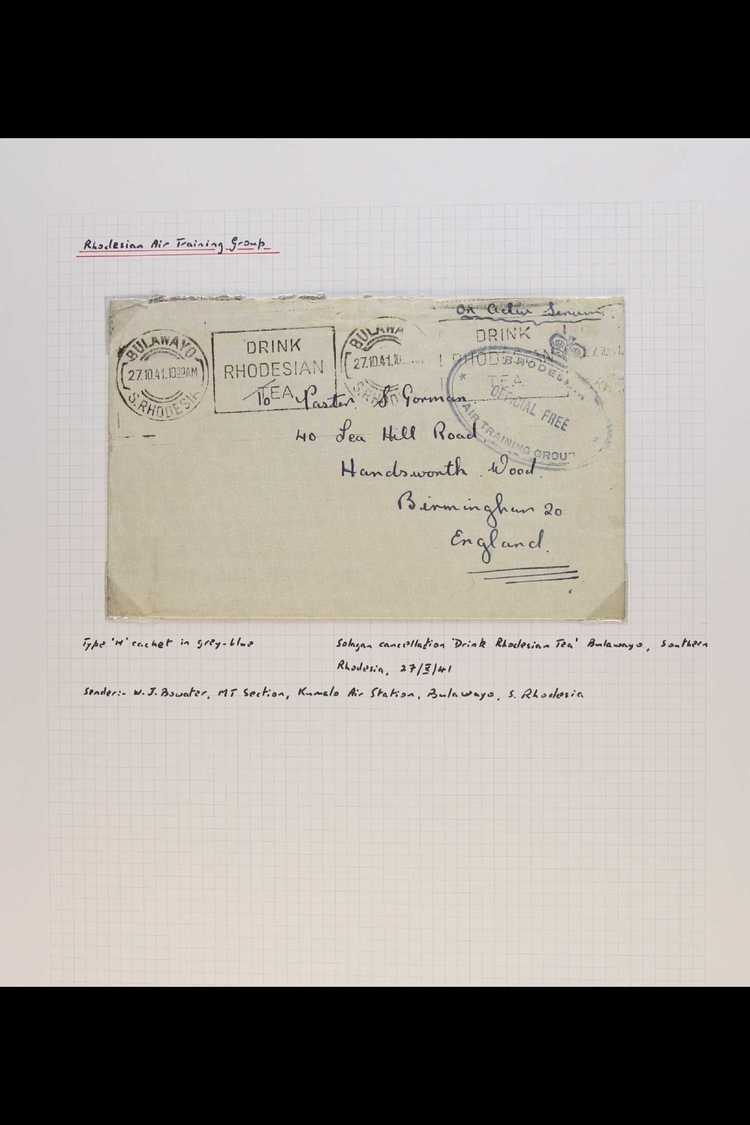 Rhodesian Air Training Group
On Active Service
BULAWAYO
27.10.41.10 AM
S. RHODESIA
DRINK
RHODESIAN
TEA
BULAWA
27.10.41.10
S. RHO
DRINK
RHOD
TEA
RHODESIAN
OFFICIAL FREE
AIR TRAINING GROUP
To Pastor S Gorman
40 Lea Hill Road
Handsworth Wood.
Birmingham 20
England.
Type 'H' cachet in grey-blue
Sologan cancellation 'Drink Rhodesian Tea' Bulawayo, Southern
Rhodesia, 27/X/41
Sender:- W. J. Bowater, MT Section, Kumalo Air Station, Bulawayo, S. Rhodesia